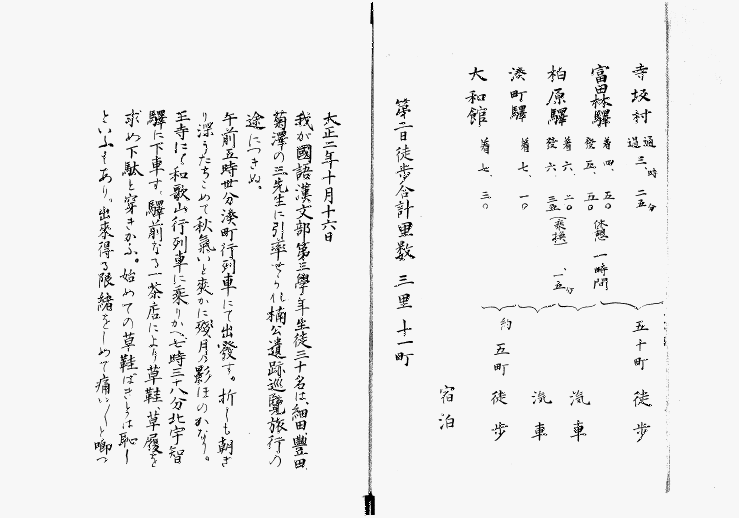 寺坂村 通過 三、時 二五分 五十町 徒歩
富田林驛 着 四、五〇 發 五、五〇 休憩 一時間
柏原驛 着 六、二〇 發 六、三五 (乘換) 、一五分 汽車
湊町驛 着 七、一〇 汽車
大和館 着 七、三〇 約五町 徒歩
宿泊
第二日徒歩合計里数 三里 十一町
大正二年十月十六日
我が國語漢文部第三學年生徒三十名は、細田、豐田、
菊澤の三先生に引率せられ楠公遺跡巡覽旅行の
途につきぬ。
午前五時丗分湊町行列車にて出發す。折しも朝ぎ
り深うたちこめて秋氣いと爽かに殘月の影ほのかなり。
王寺にて和歌山行列車に乘りかへ七時三十八分北宇智
驛に下車す、驛前なる一茶店により草鞋、草履を
求め下駄と穿きかふ。始めての草鞋ばきとは恥し
といふもあり、出來得る限緒をしめて痛い〱と喞つ